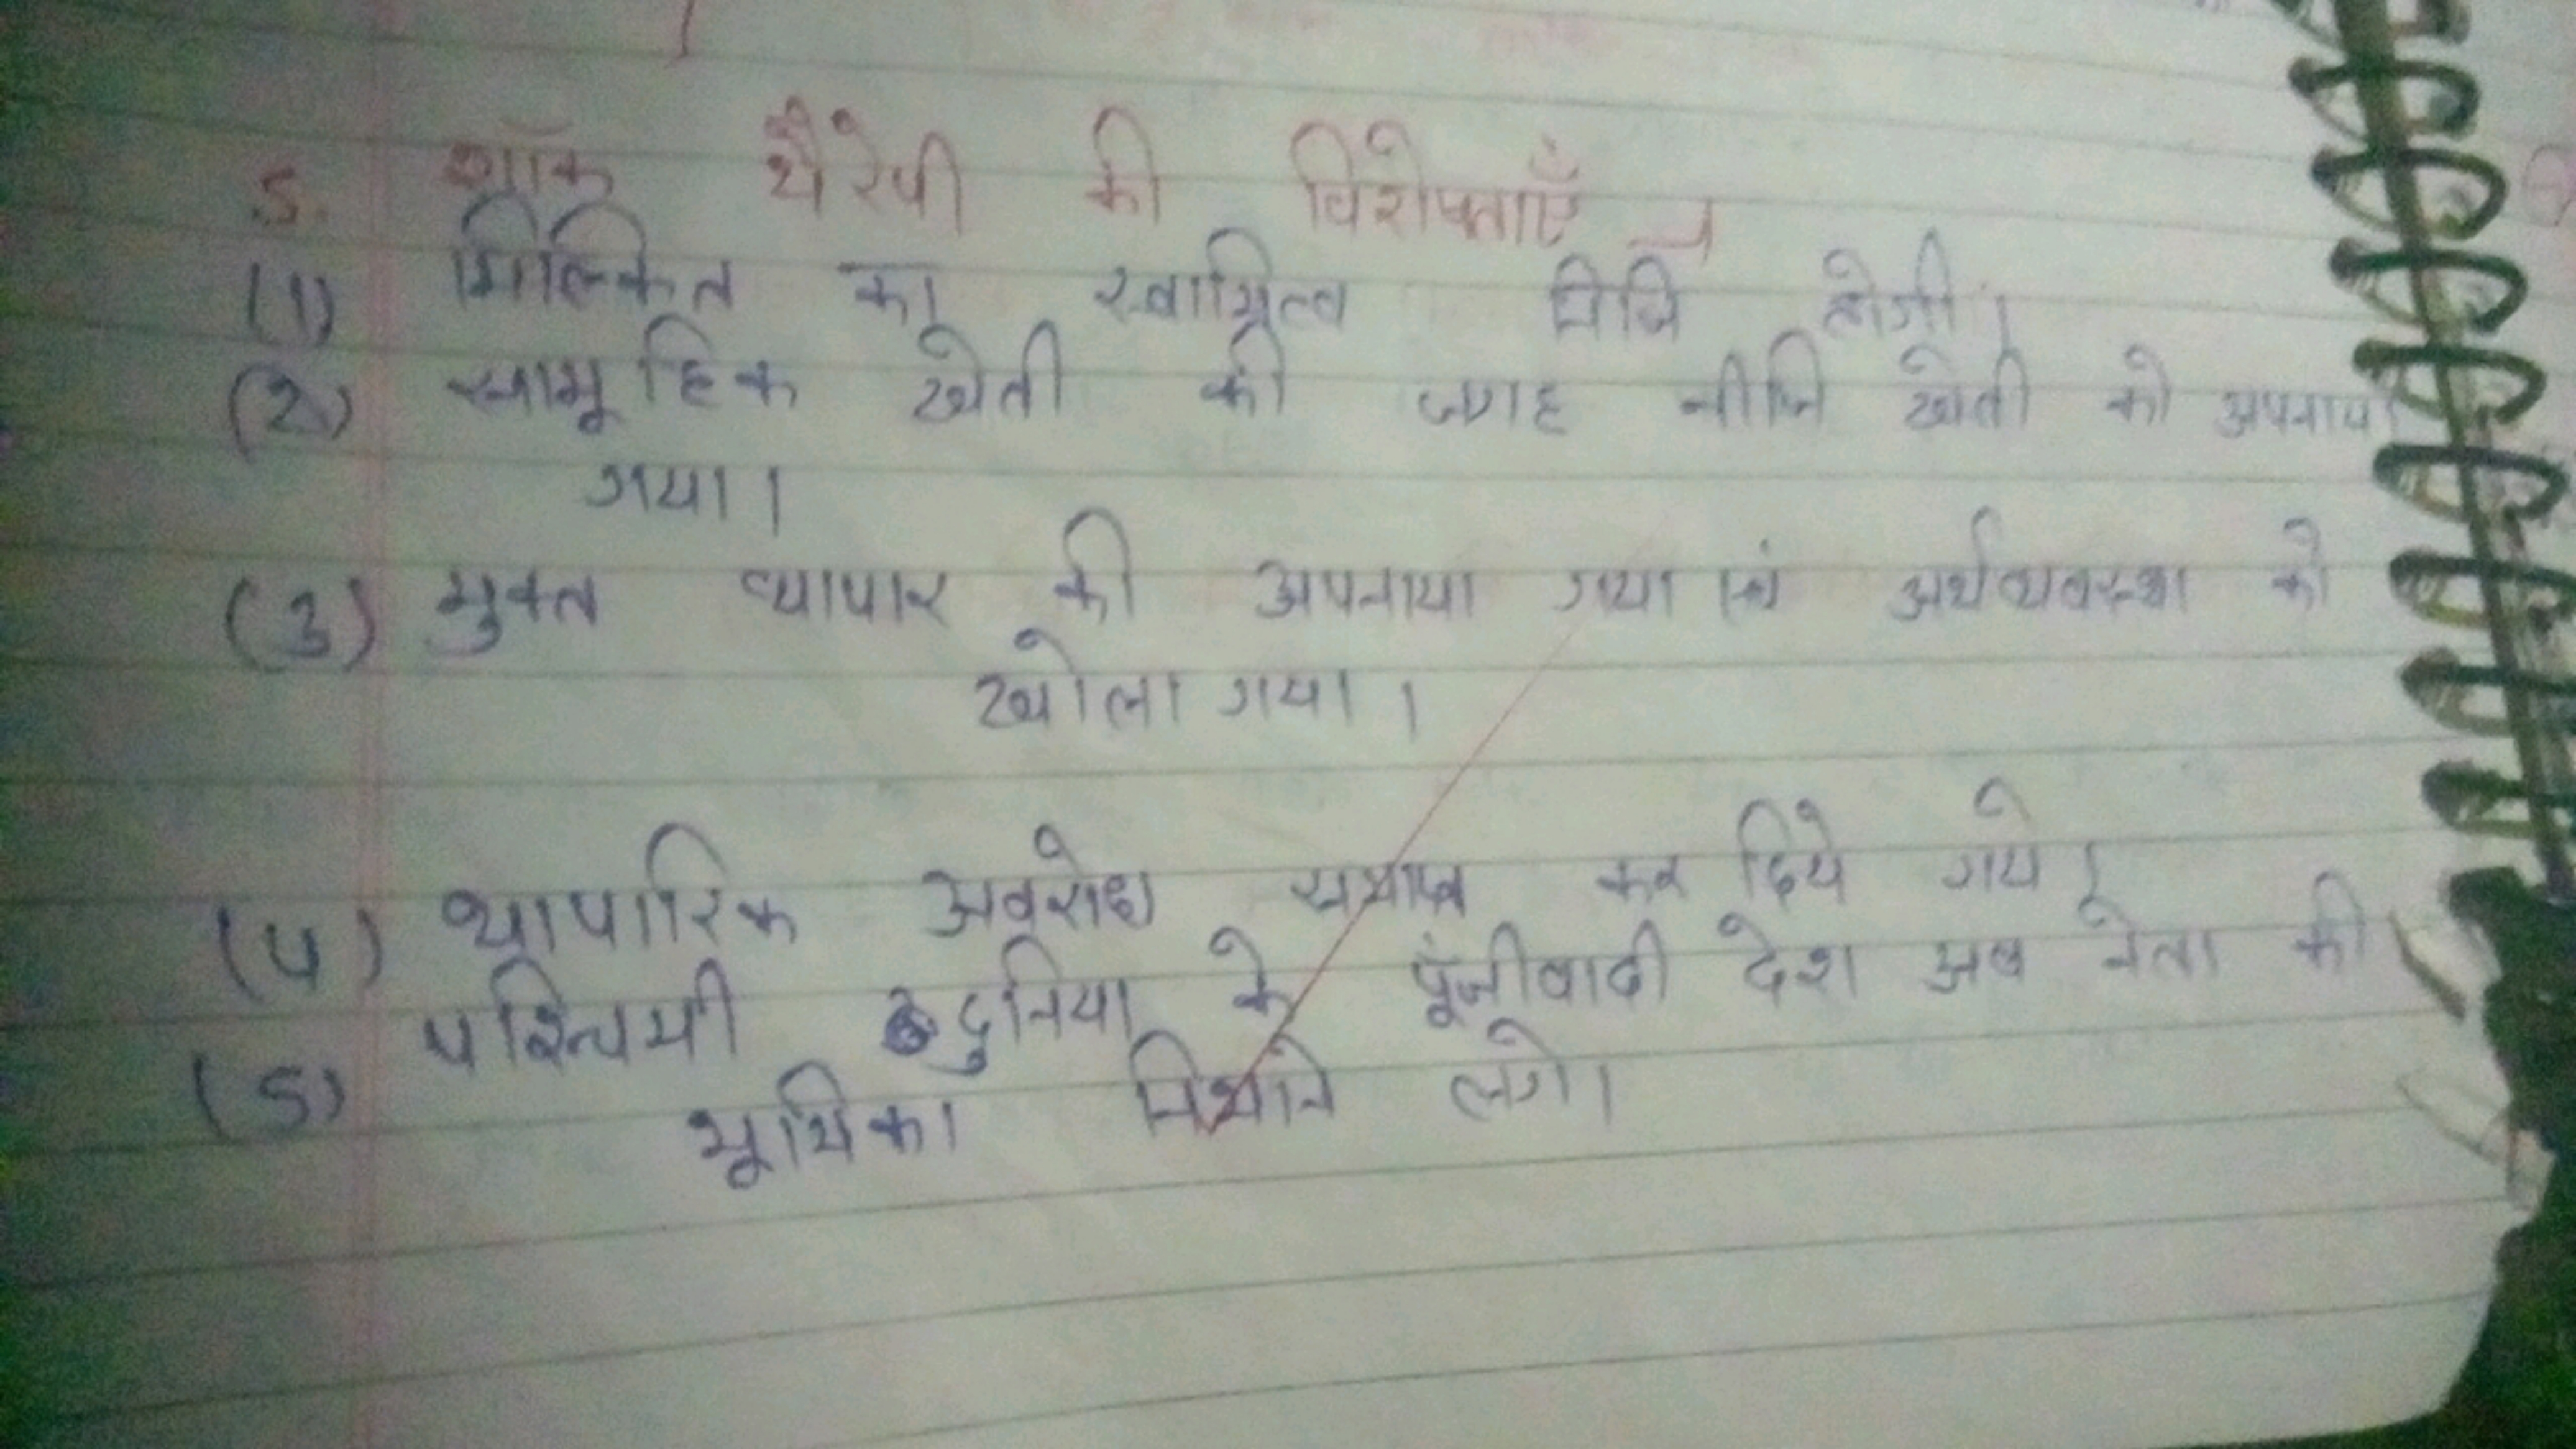 5. शॉक थैरेपी की विशेषताएँ →
(1) मिल्कित का स्वामित्व निजि होगी।
(2) सामूहिक खेती की जगह नीजि खेती को अपनाया
गया।
(3) मुक्त व्यापार की अपनाया गया एवं अर्थव्यवस्था को
खोला गया।
(4) व्यापारिक अवरोध समाप्त कर दिये गये।
(5) पश्चिमी दुनिया के पूंजीवादी देश अब नेता की
भूमिका निभाने लगे।